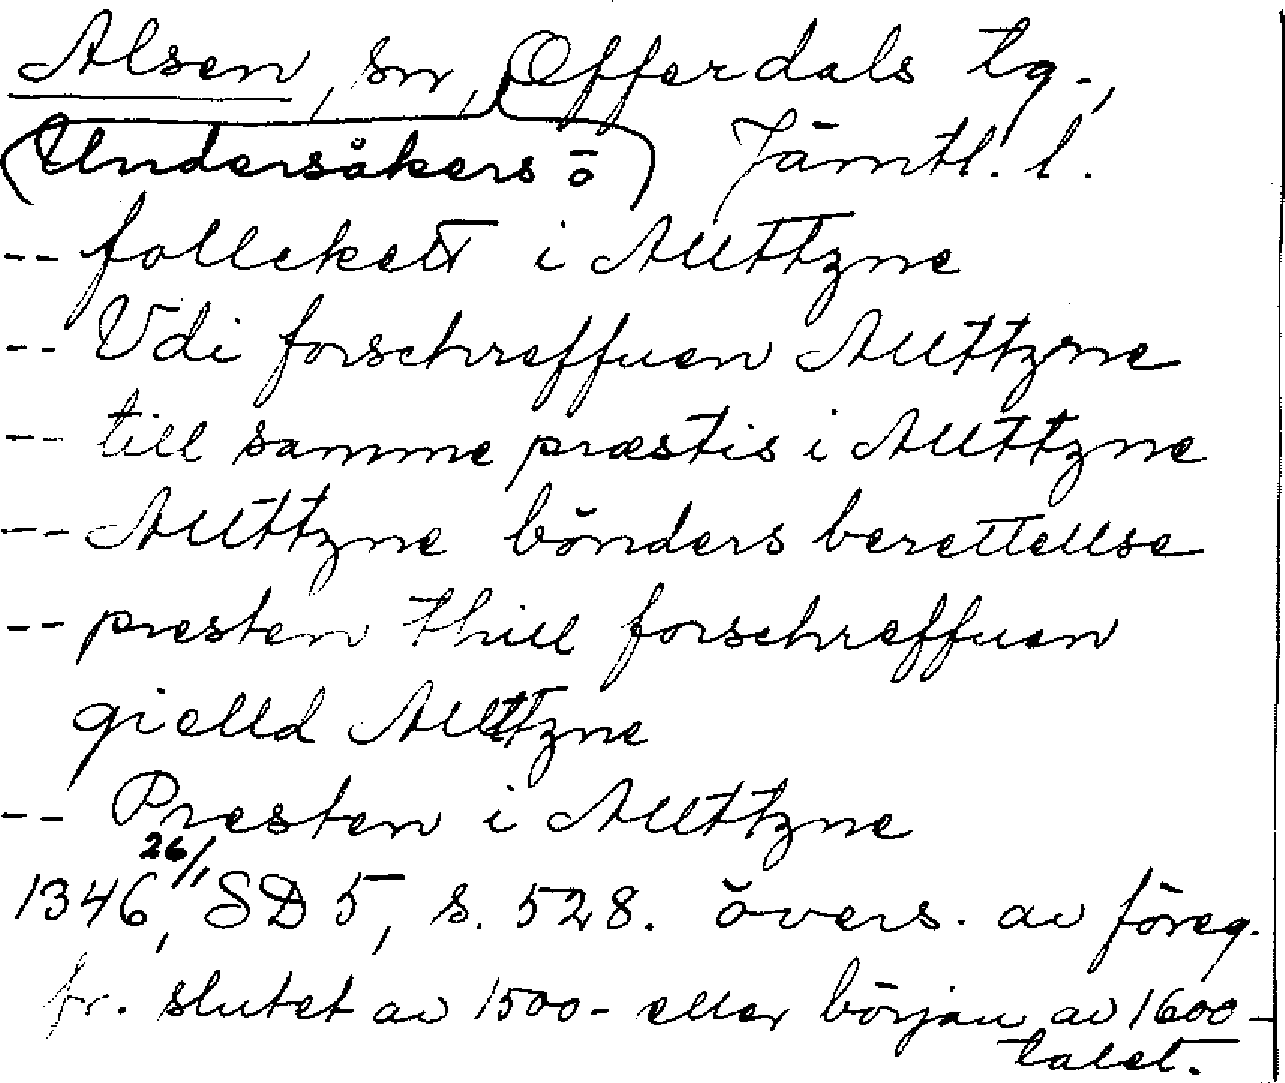 Alsen, sn, Offerdals tg.,
(Undersåkers ō) Jämtl. l.
-- follekett i Allttzne
-- Vdi forschreffuen Allttzne
-- till samme præstis i Allttzne
-- Allttzne bönders berettellse
-- presten thill forschreffuen
gielld Allttzne
-- Presten i Allttzne
1346 26/1, SD 5, s. 528. övers. av föreg.
fr. slutet av 1500- eller början av 1600-
talet.